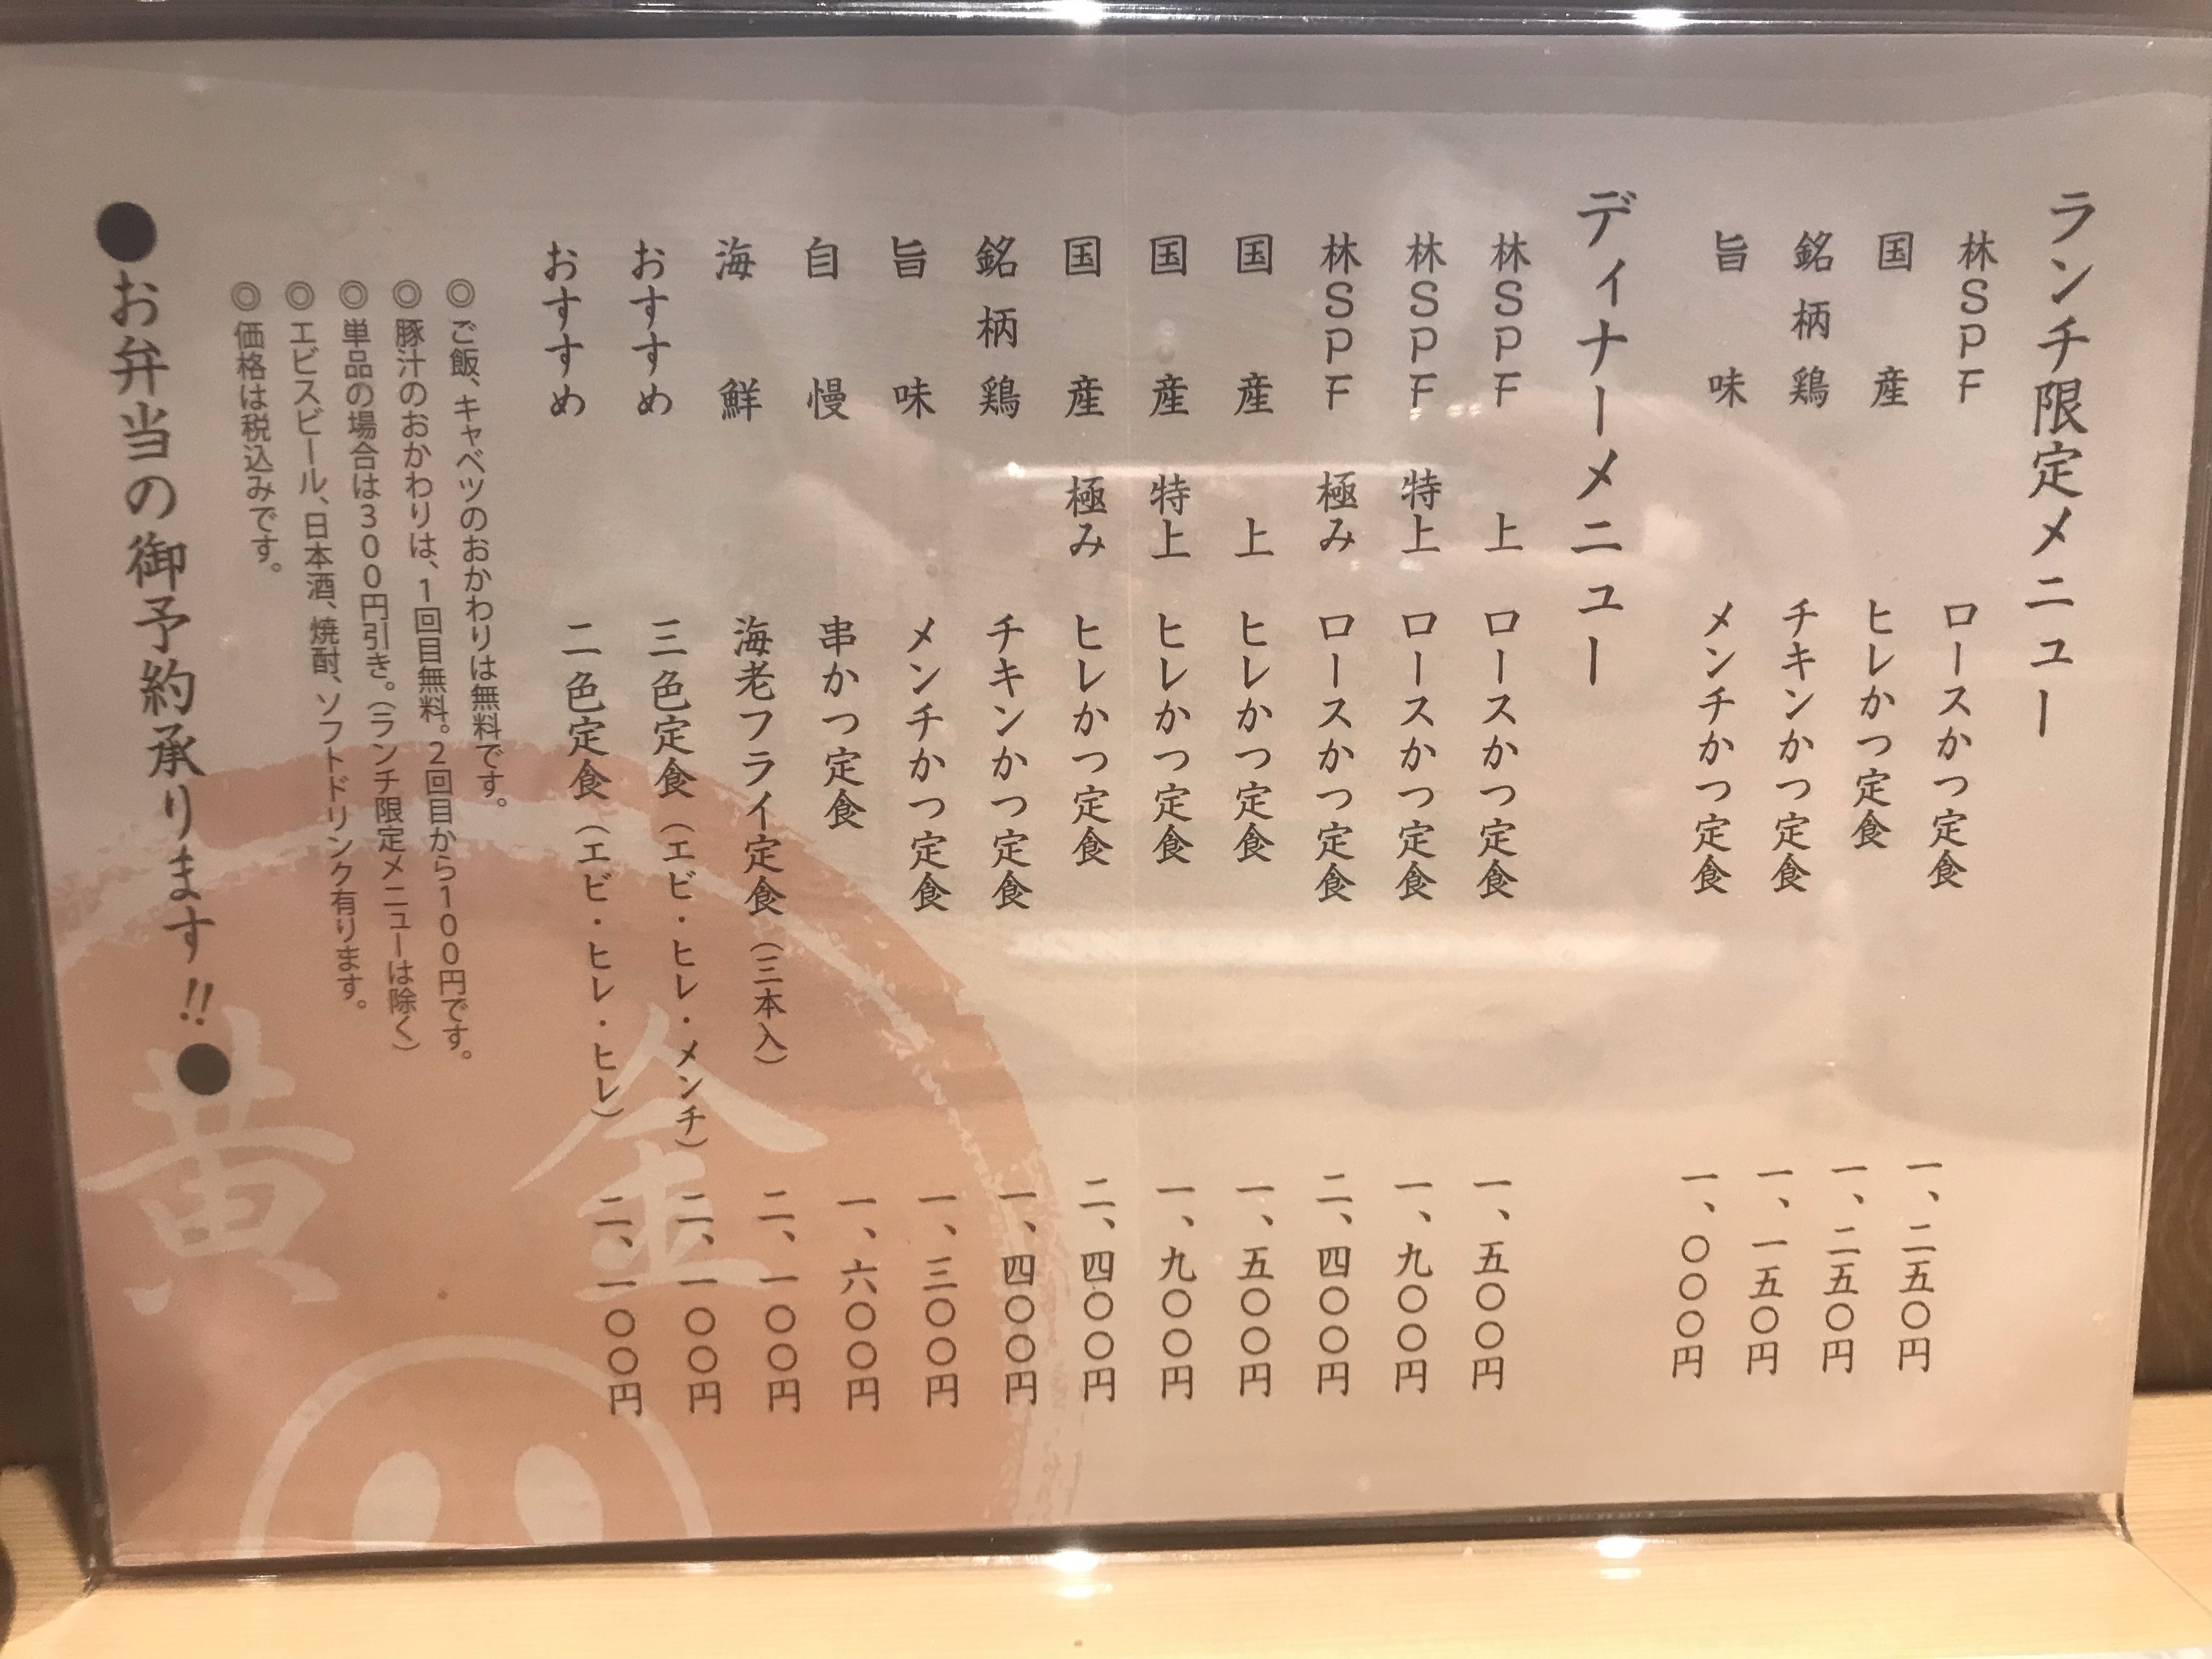 ランチ限定メニュー
林SPF ロースかつ定食 一、二五〇円
国産 ヒレかつ定食 一、二五〇円
銘柄鶏 チキンかつ定食 一、一五〇円
旨味 メンチかつ定食 一、〇〇〇円
ディナーメニュー
林SPF 上 ロースかつ定食 一、五〇〇円
林SPF 特上 ロースかつ定食 一、九〇〇円
林SPF 極み ロースかつ定食 二、四〇〇円
国産 上 ヒレかつ定食 一、五〇〇円
国産 特上 ヒレかつ定食 一、九〇〇円
国産 極み ヒレかつ定食 二、四〇〇円
銘柄鶏 チキンかつ定食 一、四〇〇円
旨味 メンチかつ定食 一、三〇〇円
自慢 串かつ定食 一、六〇〇円
海鮮 海老フライ定食（三本入） 二、一〇〇円
おすすめ 三色定食（エビ・ヒレ・メンチ） 二、一〇〇円
おすすめ 二色定食（エビ・ヒレ・ヒレ） 二、一〇〇円
◎ご飯、キャベツのおかわりは無料です。
◎豚汁のおかわりは、1回目無料。2回目から100円です。
◎単品の場合は300円引き。（ランチ限定メニューは除く）
◎エビスビール、日本酒、焼酎、ソフトドリンク有ります。
◎価格は税込みです。
●お弁当の御予約承ります!!●
黄金